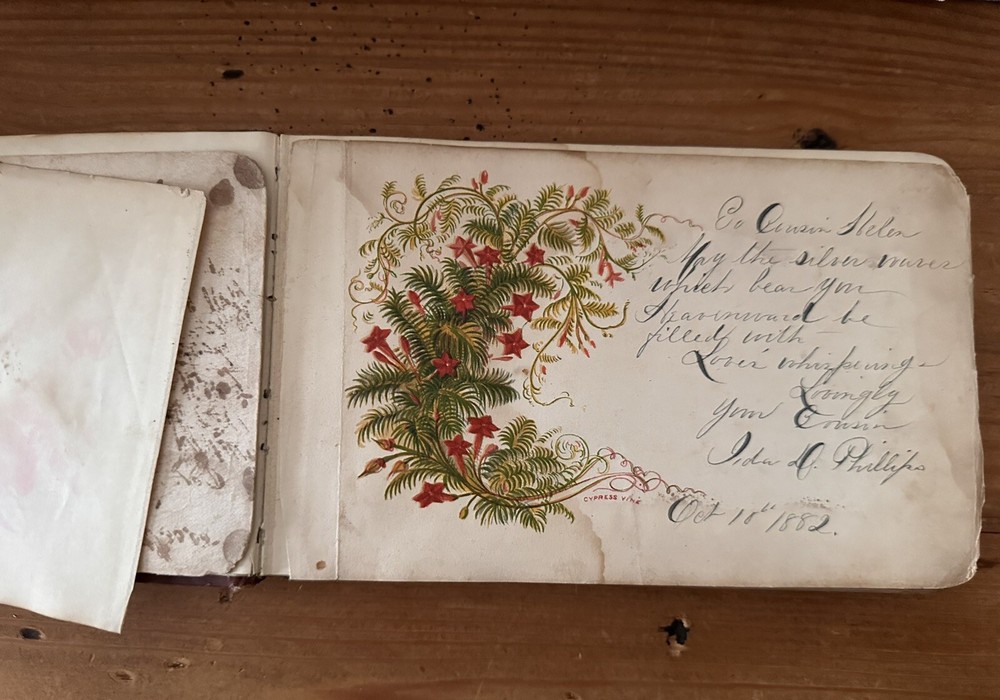 To Cousin Helen
May the silver waves
which bear you
Heavenward be
filled with
Love's whisperings
Lovingly
Your Cousin
Ida D. Phillips
Oct 10th 1882.
CYPRESS VINE